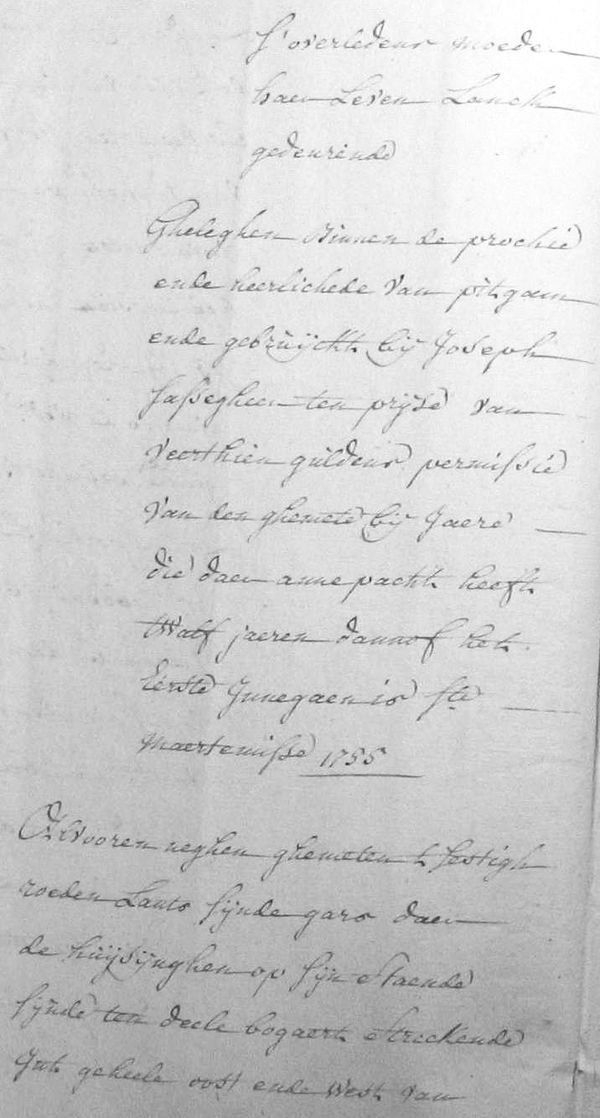 s'overledens moeder
haer Leven Lanck
gedeurende
Gheleghen Binnen de prochie
ende heerlichede van pitgam
ende gebruijckt bij Joseph
sassegheer ten prijse van
veerthien guldens permissie
van den ghemete bij Jaere
die daer anne pacht heeft
twalf jaeren dannof het
Eerste Innegaen is ste
Maertemisse 1755
Alvooren neghen ghemeten t sestigh
roeden Lants sijnde gars daer
de huijsijnghen op sijn Staende
sijnde ten deele bogaert Streckende
Int geheele oost ende west van